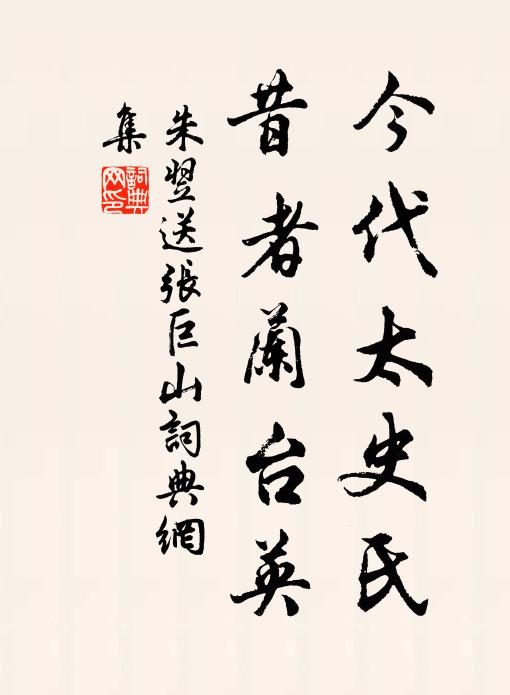 今代太史氏
昔者蘭台英
朱翌送張巨山詞典網
集
詞典
网印